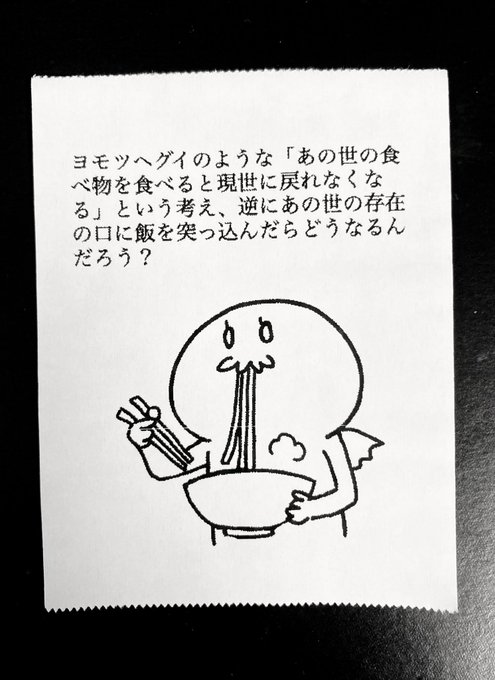 ヨモツヘグイのような「あの世の食
べ物を食べると現世に戻れなくな
る」という考え、逆にあの世の存在
の口に飯を突っ込んだらどうなるん
だろう？